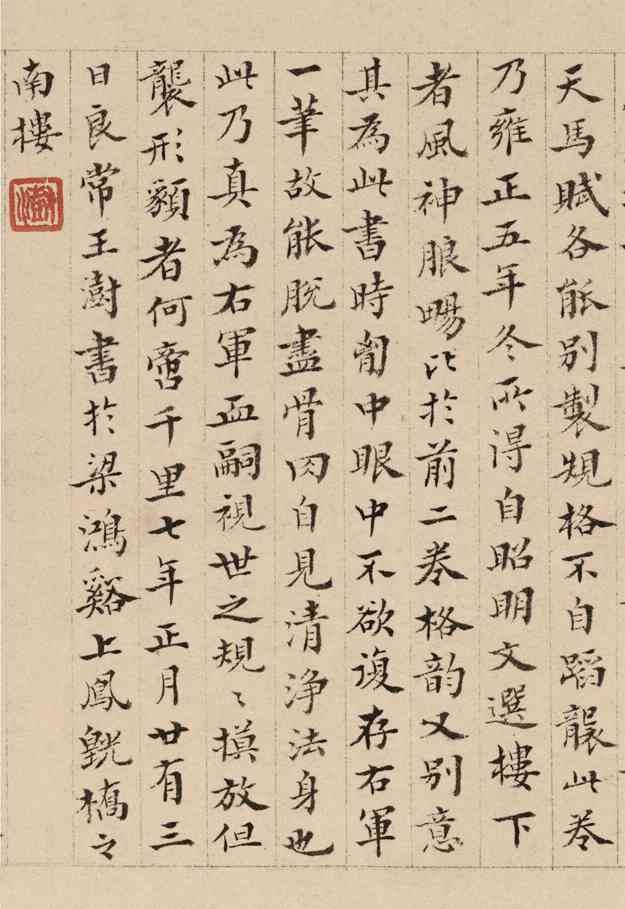 天馬賦各能別製規格不自蹈襲此卷
乃雍正五年冬所得自昭明文選樓下
者風神朖暢比於前二卷格韻又別意
其為此書時匈中眼中不欲復存右軍
一筆故能脫盡骨肉自見清淨法身也
此乃真為右軍血嗣視世之規〻摸放但
襲形貌者何啻千里七年正月廿有三
日良常王澍書於梁鴻谿上鳳橋之
南樓
澍